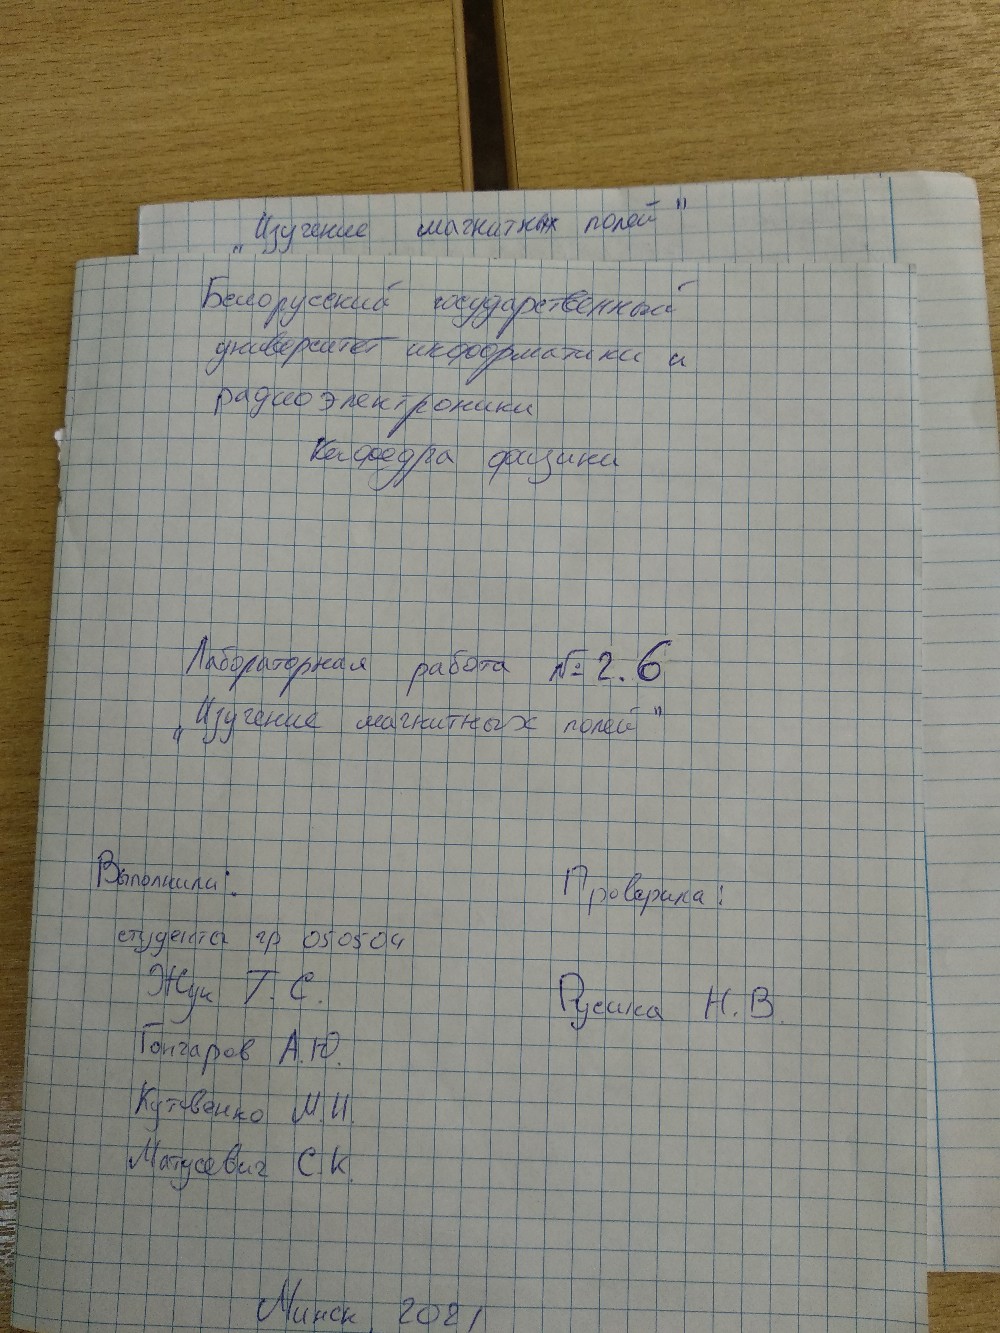 „Изучение магнитных полей"
Белорусский государственный
университет информатики и
радиоэлектроники
Кафедра физики
Лабораторная работа № 2.6
„Изучение магнитных полей"
Выполнили:
студенты гр 050504
Жук Т. С.
Гончаров А.Ю.
Кутовенко М.И.
Матусевич С.К.
Проверила:
Русина Н.В.
Минск, 2021